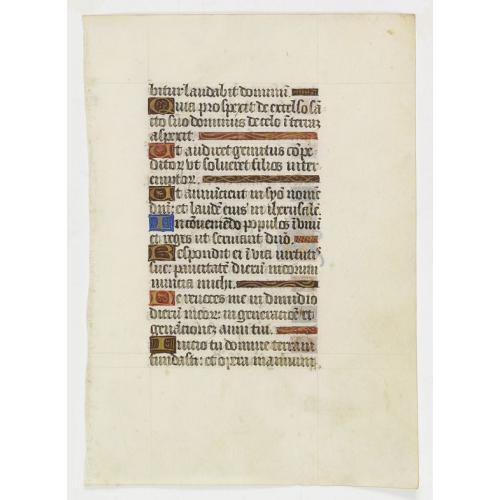 bitur laudabit dominū.
Quia prospexit de excelso sā
cto suo dominus de celo in terrā
aspexit.
Ut audiret gemitus cōpe
ditor ut solueret filios inter
emptor.
Ut annuncient in syō nomē
dn̄i: et laudē eius in iherusalē.
In cōueniēdo populos ī unū
et reges ut seruiant dn̄o.
Respondit ei in via virtutis
sue: paucitatē dierū meorum
nuncia michi.
Ne reuoces me in dimidio
dierū meor: in generacionē et
generacionez anni tui.
Inicio tu domine terram
fundasti: et opera manuum